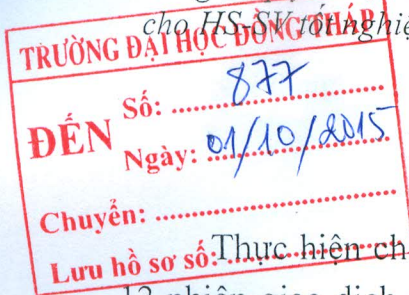 cho HS-SV tốt nghiệ
TRƯỜNG ĐẠI HỌC ĐỒNG THÁP
ĐẾN
Số: 877
Ngày: 01/10/2015
Chuyển:
Lưu hồ sơ số:
Thực hiện ch
12 phiên giao dịch